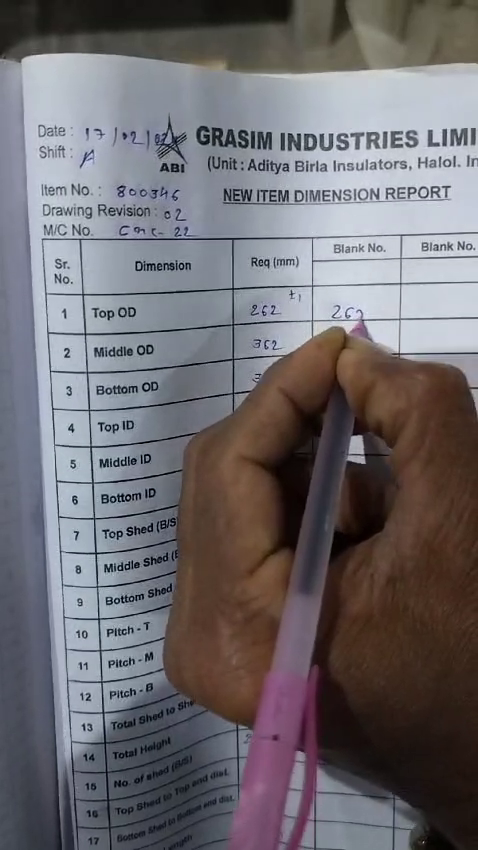 Date : 17/02/
Shift : A
ABI
GRASIM INDUSTRIES LIMI
(Unit : Aditya Birla Insulators, Halol. In
Item No. : 800346
NEW ITEM DIMENSION REPORT
Drawing Revision : 02
M/C No. CNC-22
Sr. No. Dimension Req (mm) Blank No. Blank No.
1 Top OD 262 ±1 262
2 Middle OD 362
3 Bottom OD
4 Top ID
5 Middle ID
6 Bottom ID
7 Top Shed (B/S)
8 Middle Shed (B
9 Bottom Shed
10 Pitch - T
11 Pitch - M
12 Pitch - B
13 Total Shed to She
14 Total Height
15 No. of shed (B/S)
16 Top Shed to Top end dist.
17 Bottom Shed to Bottom end dist.
Length